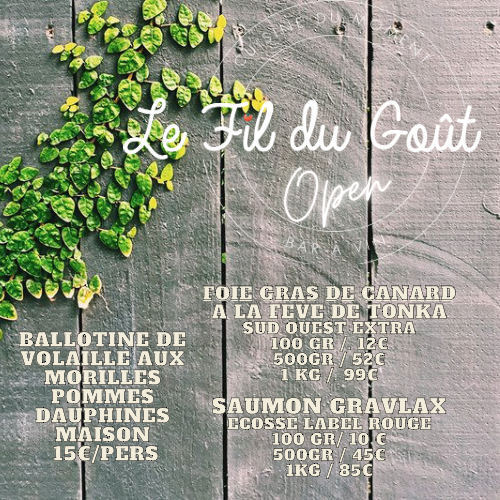 CUISINE DU MOMENT
Le Fil du Goût
Open
BAR A VIN
FOIE GRAS DE CANARD
A LA FEVE DE TONKA
SUD OUEST EXTRA
100 GR / 12€
500GR / 52€
1 KG / 99€
BALLOTINE DE
VOLAILLE AUX
MORILLES
POMMES
DAUPHINES
MAISON
15€/PERS
SAUMON GRAVLAX
ECOSSE LABEL ROUGE
100 GR/ 10 €
500GR / 45€
1KG / 85€